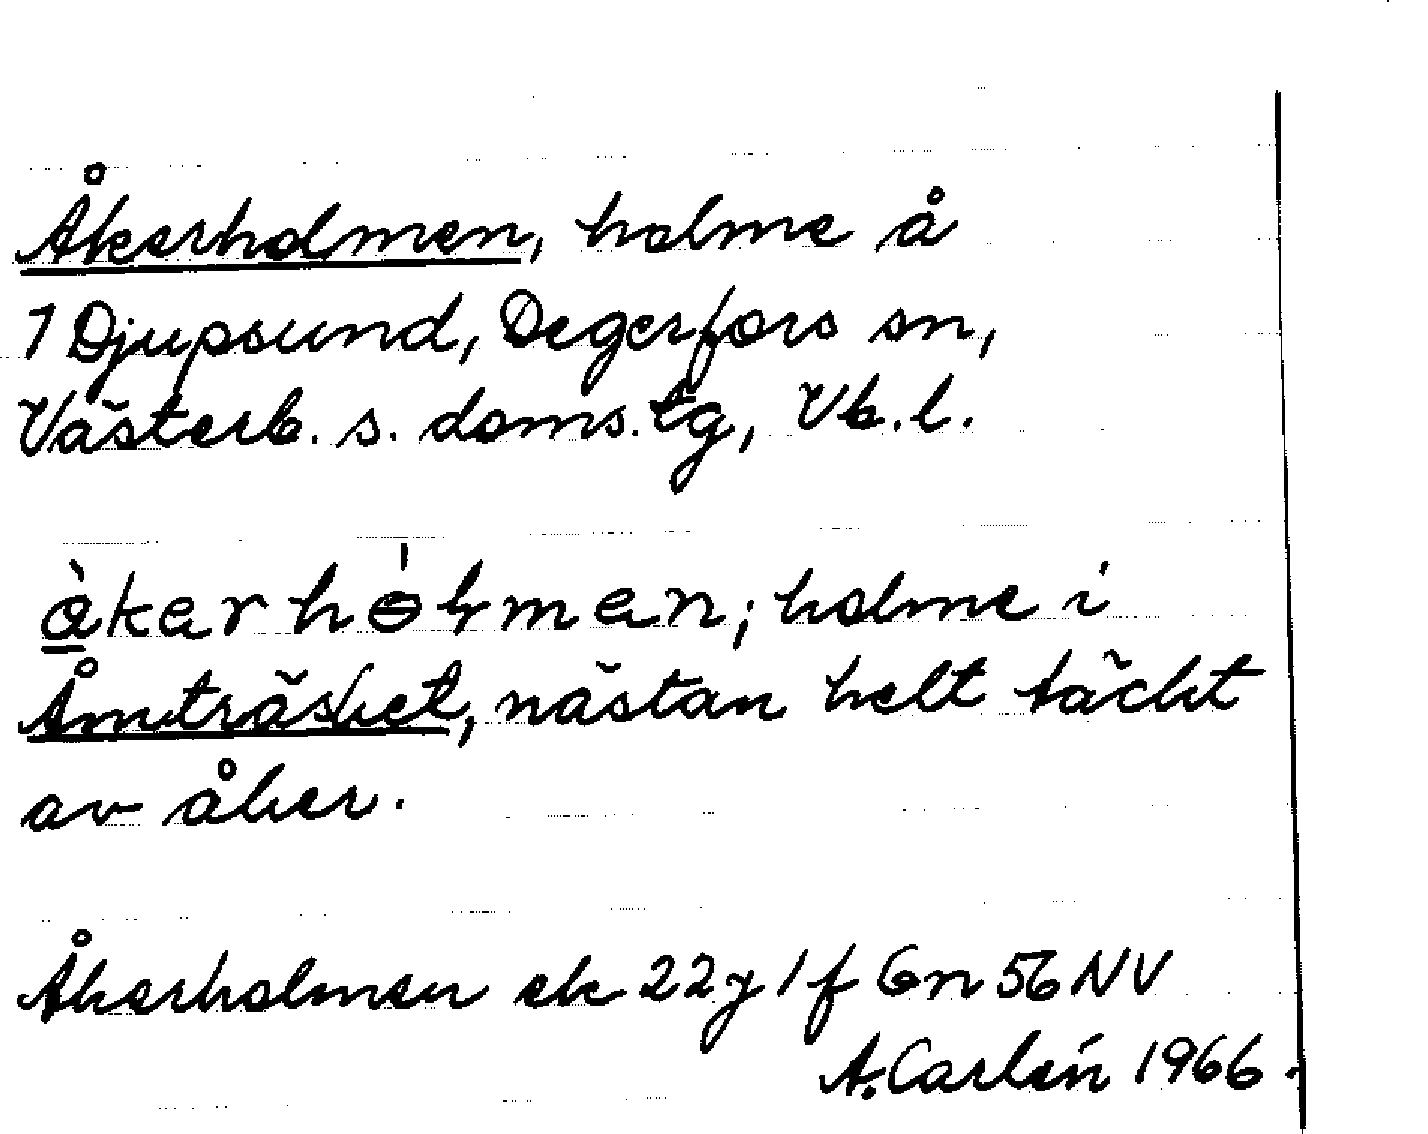 Åkerholmen, holme å
1 Djupsund, Degerfors sn,
Västerb. s. doms.tg, Vb.l.
åkerhólmen; holme i
Åmträsket, nästan helt täckt
av åker.
Åkerholmen ek 22 j 1 f Gn 56 NV
A. Carlén 1966.